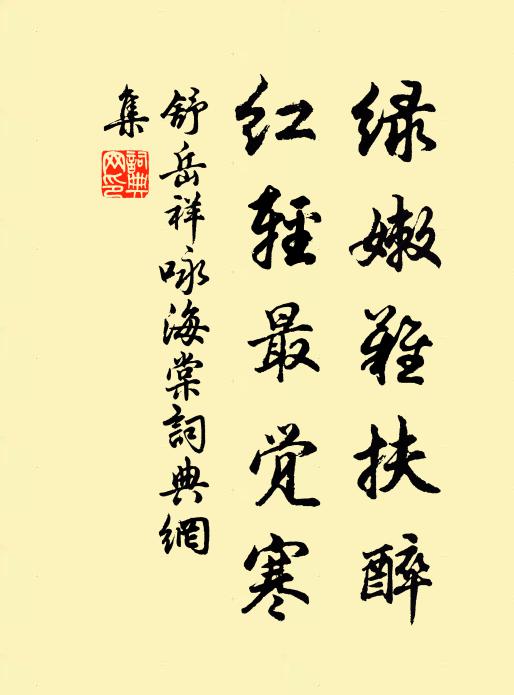 绿嫩难扶醉
红轻最觉寒
舒岳祥咏海棠词典网
集
词典网印